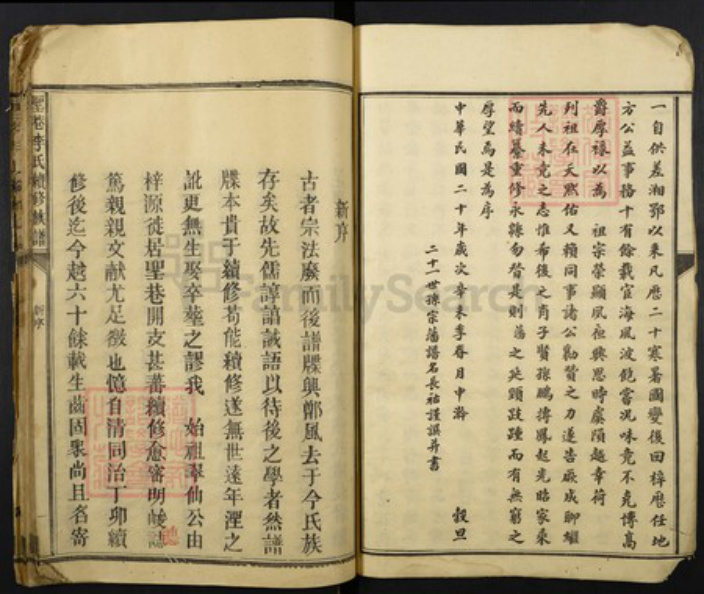 一自供差湘鄂以來凡歷二十寒暑國變後回梓歷任地
方公益事務十有餘載宦海風波飽嘗況味竟不克博高
爵厚祿以為 祖宗榮顯夙夜興思時虞隕越幸荷
列祖在天默佑又賴同事諸公勷贊之力遂告厥成聊繼
先人未竟之志惟希後之肖子賢孫鵬摶鳳起光昭家乘
而續纂重修永錄勿替是則 蕩之延頸跂踵而有無窮之
厚望焉是為序
中華民國二十年歲次辛未季春月中澣 穀旦
二十一世孫宗藩譜名長祜謹譔并書
新序
古者宗法廢而後譜牒興鄭風去于今氏族
存矣故先儒諄諄誡語以待後之學者然譜
牒本貴于續修苟能續修遂無世遠年湮之
訛更無生娶卒塟之謬我 始祖翠仙公由
梓源徙居聖巷開支甚蕃續修愈審明峻
篤親親文獻尤足徵也憶自清同治丁卯續
修後迄今越六十餘載生齒固眾尚且名寄
聖巷李氏續修族譜
新序
FamilySearch